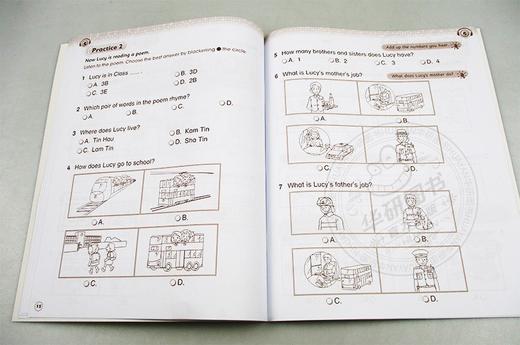 Practice 2
Now Lucy is reading a poem.
Listen to the poem. Choose the best answer by blackening ● the circle.
1 Lucy is in Class ...... .
A. 3B
B. 3D
C. 3E
D. 2B
2 Which pair of words in the poem rhyme?
A.
B.
C.
D.
3 Where does Lucy live?
A. Tin Hau
B. Kam Tin
C. Lam Tin
D. Sha Tin
4 How does Lucy go to school?
A.
B.
C.
D.
12
Add up the numbers you hear.
5 How many brothers and sisters does Lucy have?
A. 1
B. 2
C. 3
D. 4
6 What is Lucy's mother's job?
What does Lucy's mother do?
A.
B.
C.
D.
7 What is Lucy's father's job?
A.
B.
C.
D.
华研图书